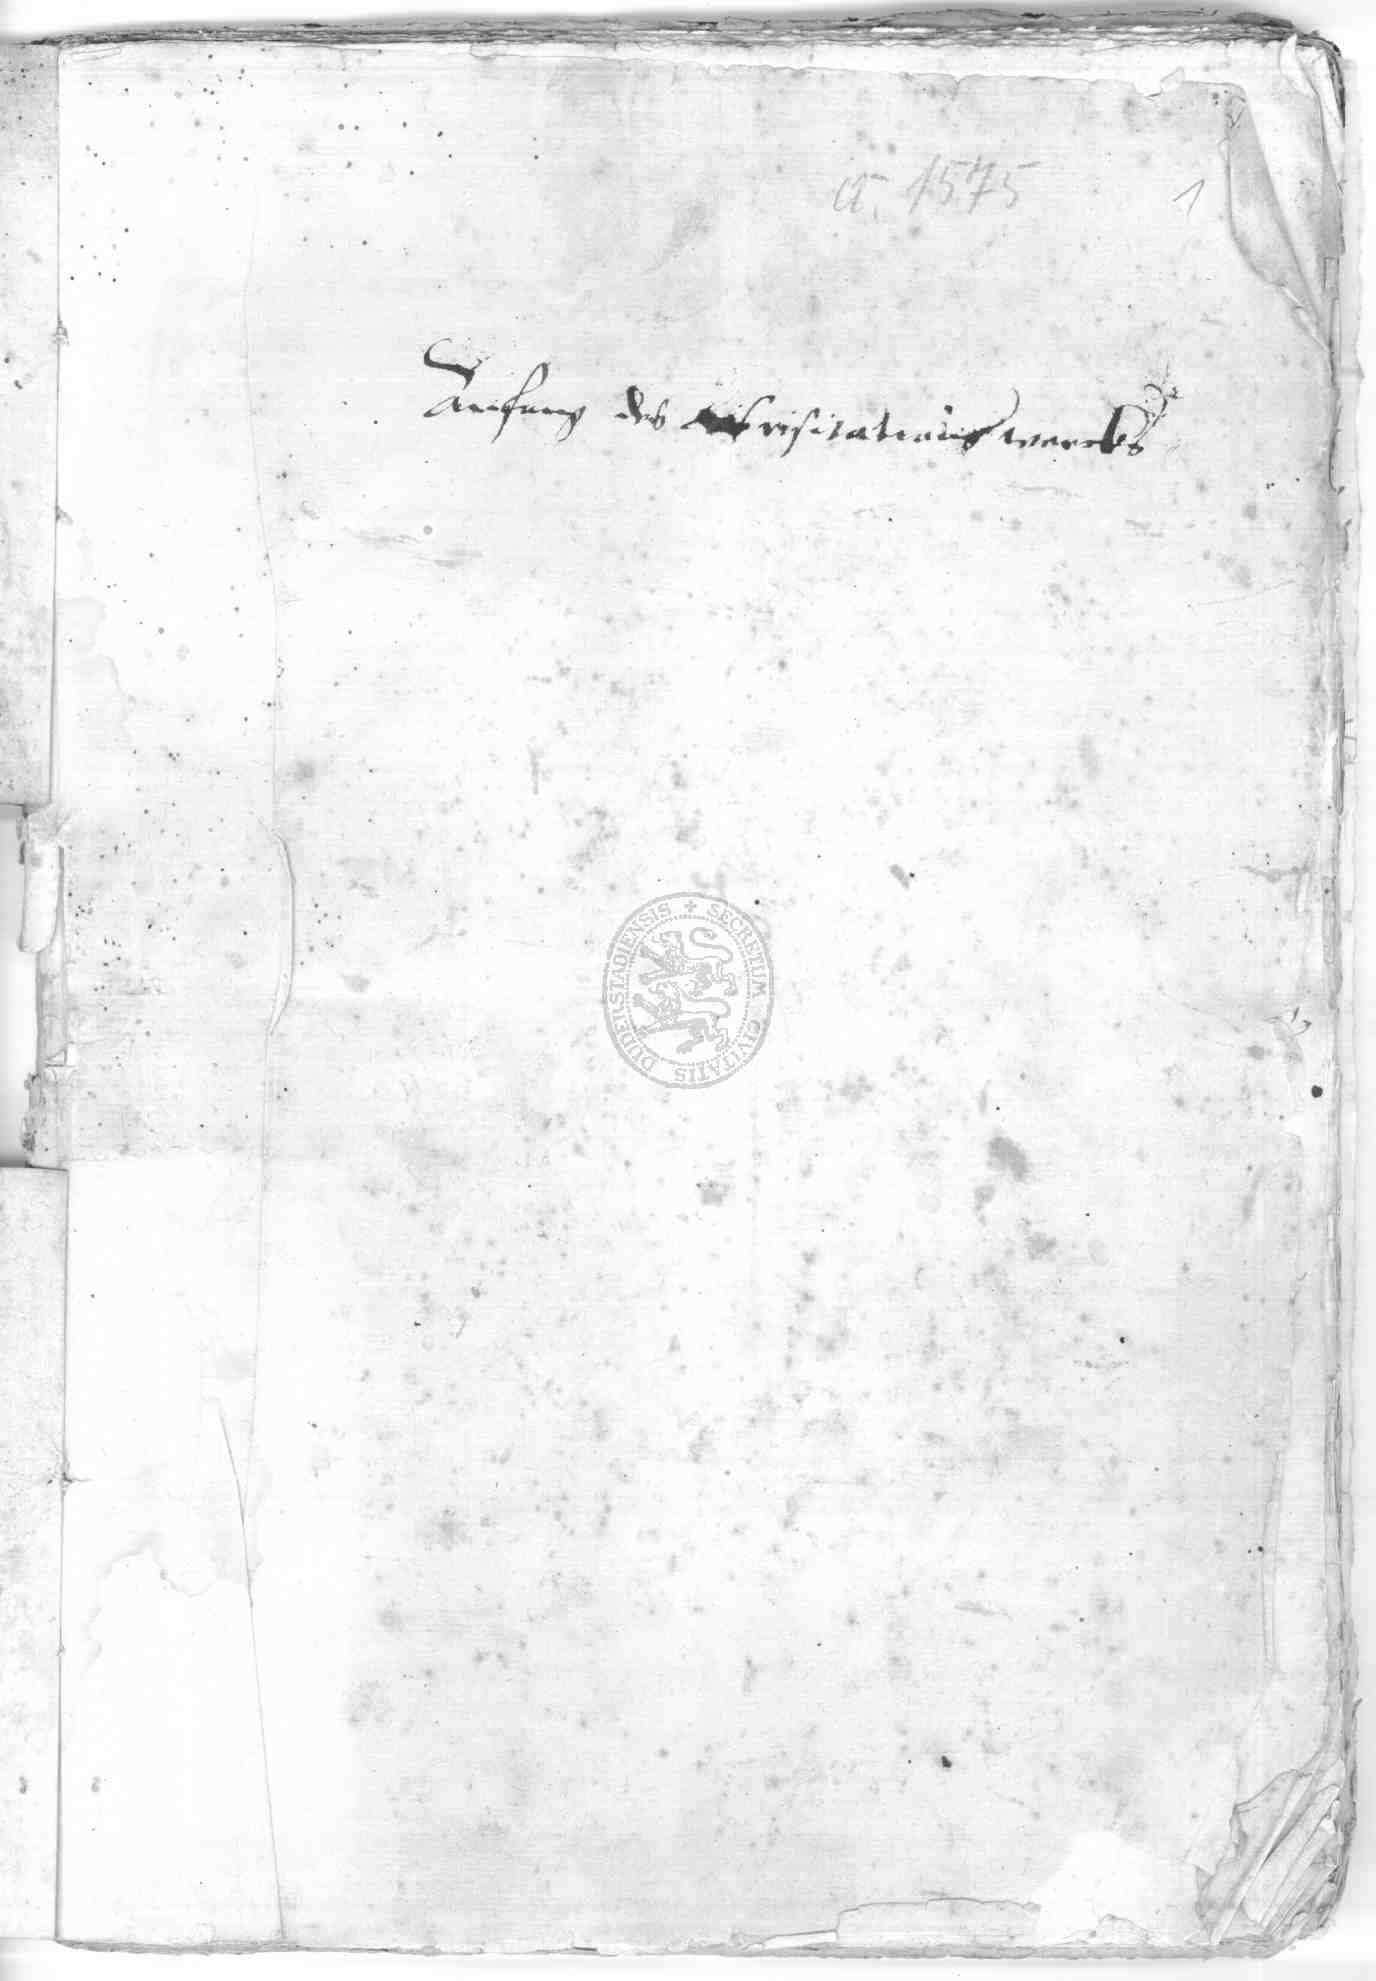 a. 1575
1
Anfang des visitations wercks
SECRETUM CIVITATIS DUDERSTADIENSIS